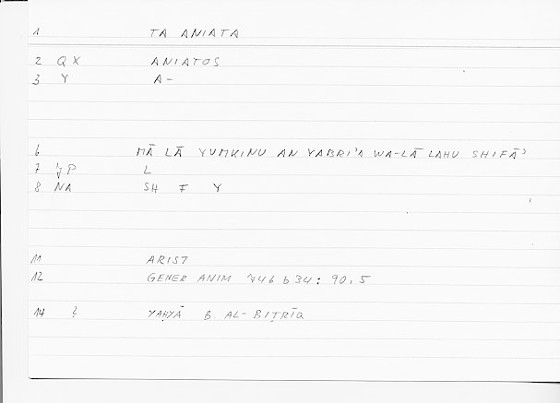 1 TA ANIATA
2 QX ANIATOS
3 Y A-
6 MĀ LĀ YUMKINU AN YABRI'A WA-LĀ LAHU SHIFĀ'
7 P L
8 NA SH F Y
11 ARIST
12 GENER ANIM 746 b 34: 90,5
14 YAḤYĀ B AL-BIṬRĪQ